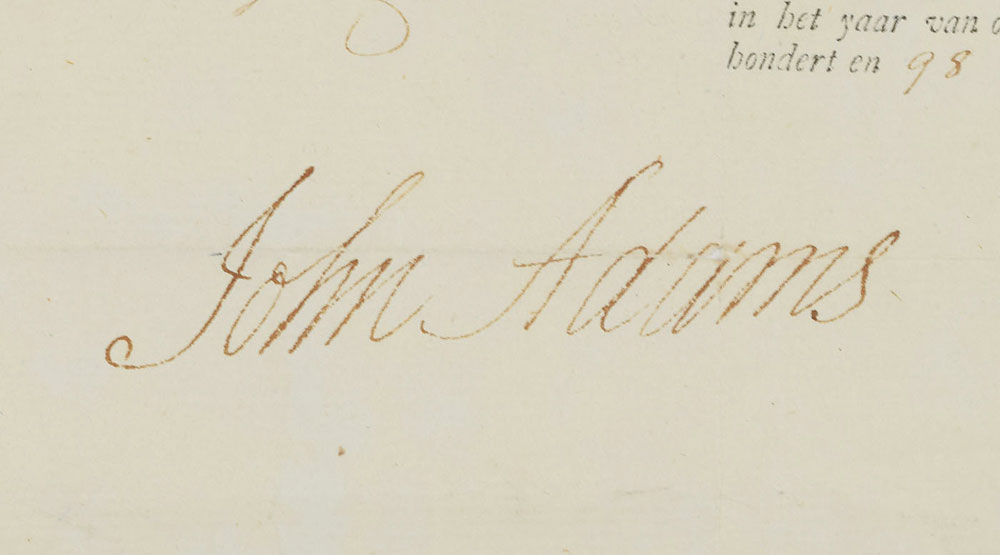 in het yaar van
hondert en 98
John Adams